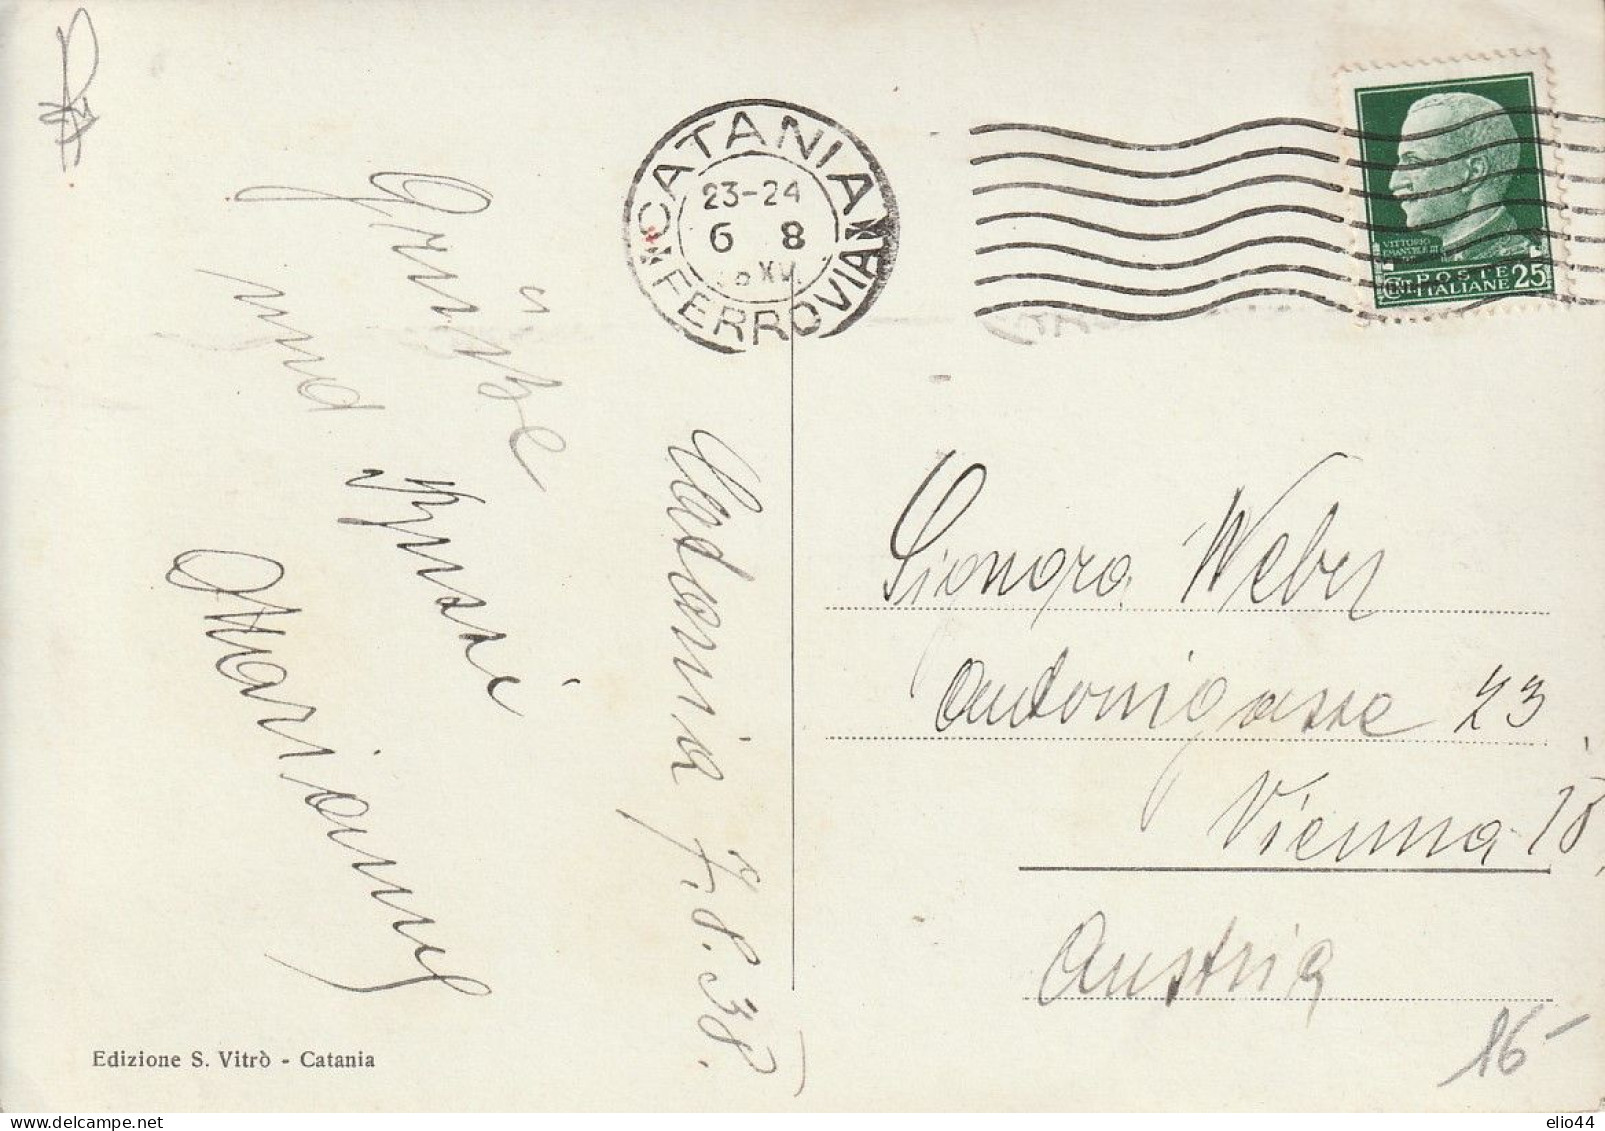 CATANIA
23-24
6 8
FERROVIA
VITTORIO
EMANUELE III
POSTE
ITALIANE 25
Grüße
und Bussi
Marianne
Catania 7.8.38.
Signora Weber
Antonigasse 23
Vienna 18.
Austria
16-
Edizione S. Vitrò - Catania
elio44